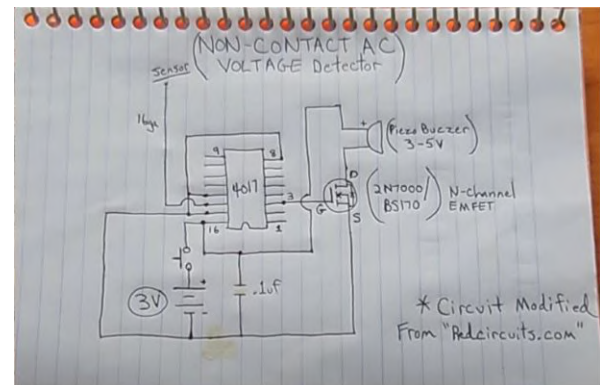 NON-CONTACT AC
VOLTAGE Detector
Sensor
16ga
9
8
4017
3
16
1
+
Piezo Buzzer
3-5V
D
G
S
2N7000/
BS170
N-Channel
EMFET
+
-
3V
.1uf
* Circuit Modified
From "Redcircuits.com"